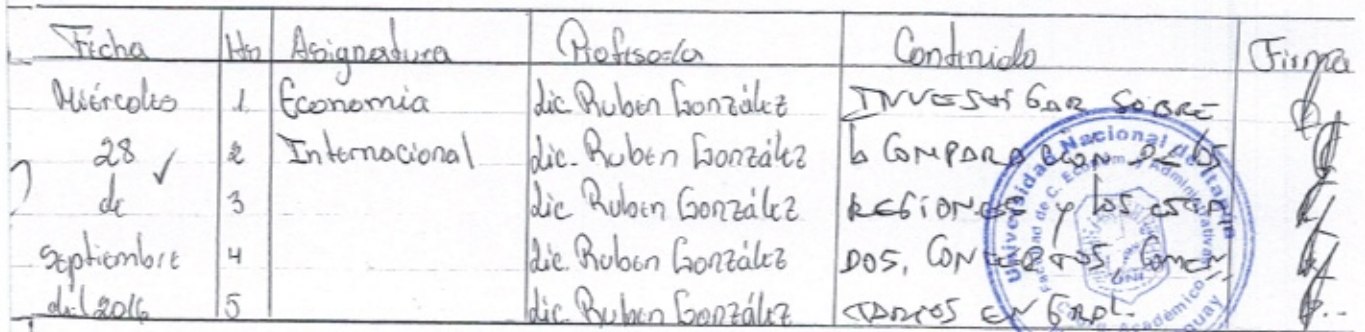 Fecha Hn Asignatura Profesor/a Contenido Firma
Miércoles 1 Economia Lic. Ruben González INVESTIGAR SOBRE
28 2 Internacional Lic. Ruben González LA COMPARACION DE LOS
de 3 Lic. Ruben González REGIONES Y los ESTA
Septiembre 4 Lic. Ruben González DOS, CONCEPTOS, COMEN
del 2016 5 Lic. Ruben González TARIOS EN GRAL.
Universidad Nacional de Itapúa
Facultad de C. Económ. y Administrativas
Académico